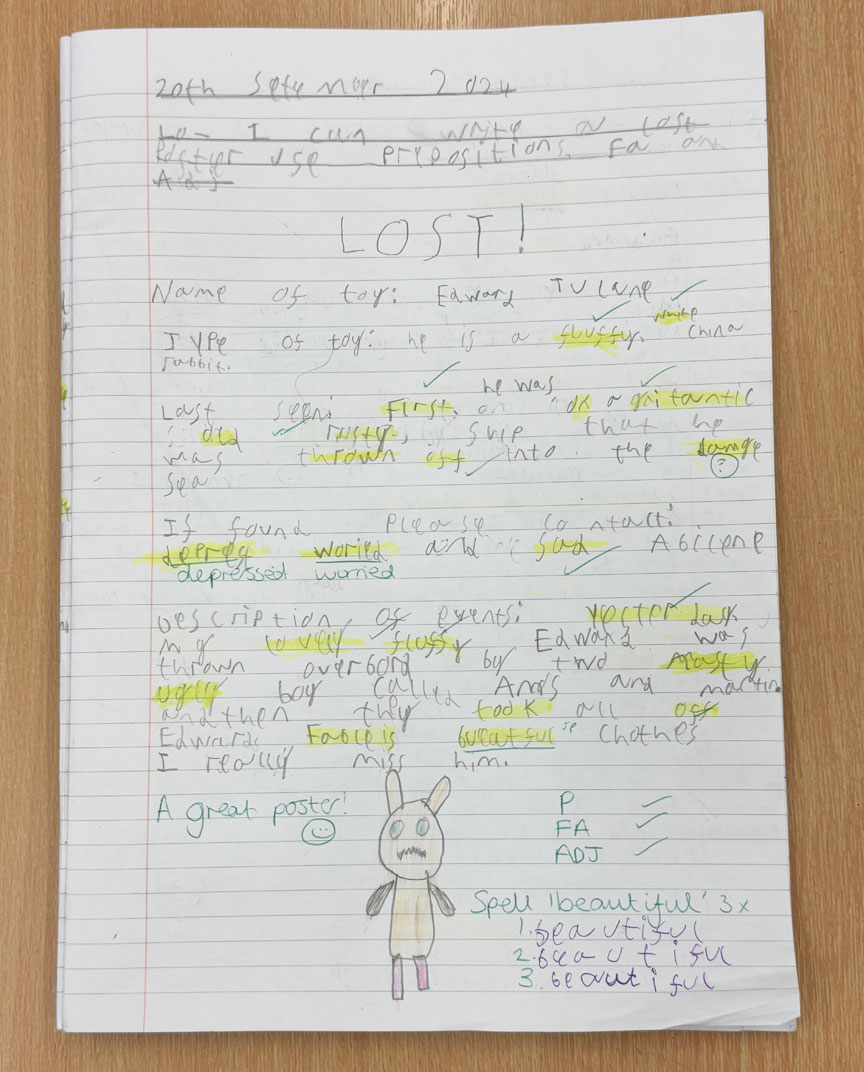 20th September 2024
Lo- I can write a Lost
Poster use prepositions, Fa and
Adj
LOST!
Name of toy: Edward Tulane
white
Type of toy: he is a fluffy, china
rabbit.
he was
Last seen: First, on a gnitantic
old rusty, ship that he
was thrown off into the damge
?
sea
If found Please contact:
depreg woried and sad Abilene
depressed worried
Description of events: Yesterday
my lovely fluffy Edward was
thrown overbord by two nasty
ugly boy called Amos and martin
and then they took all off
Edwards Fableis bueatful Clothes
I really miss him.
A great poster!
P
FA
ADJ
Spell 'beautiful' 3x
1. beautiful
2. beautiful
3. beautiful